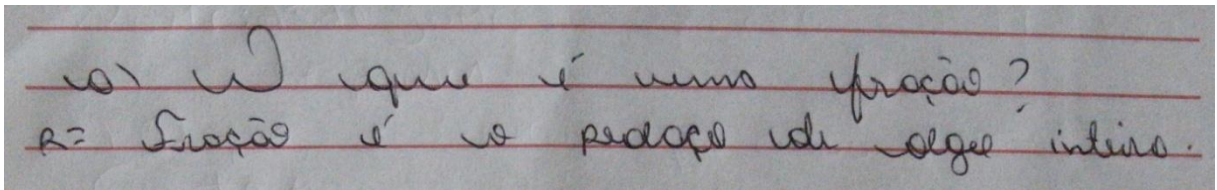 a) O que é uma fração?
R= Fração é o pedaço de algo inteiro.